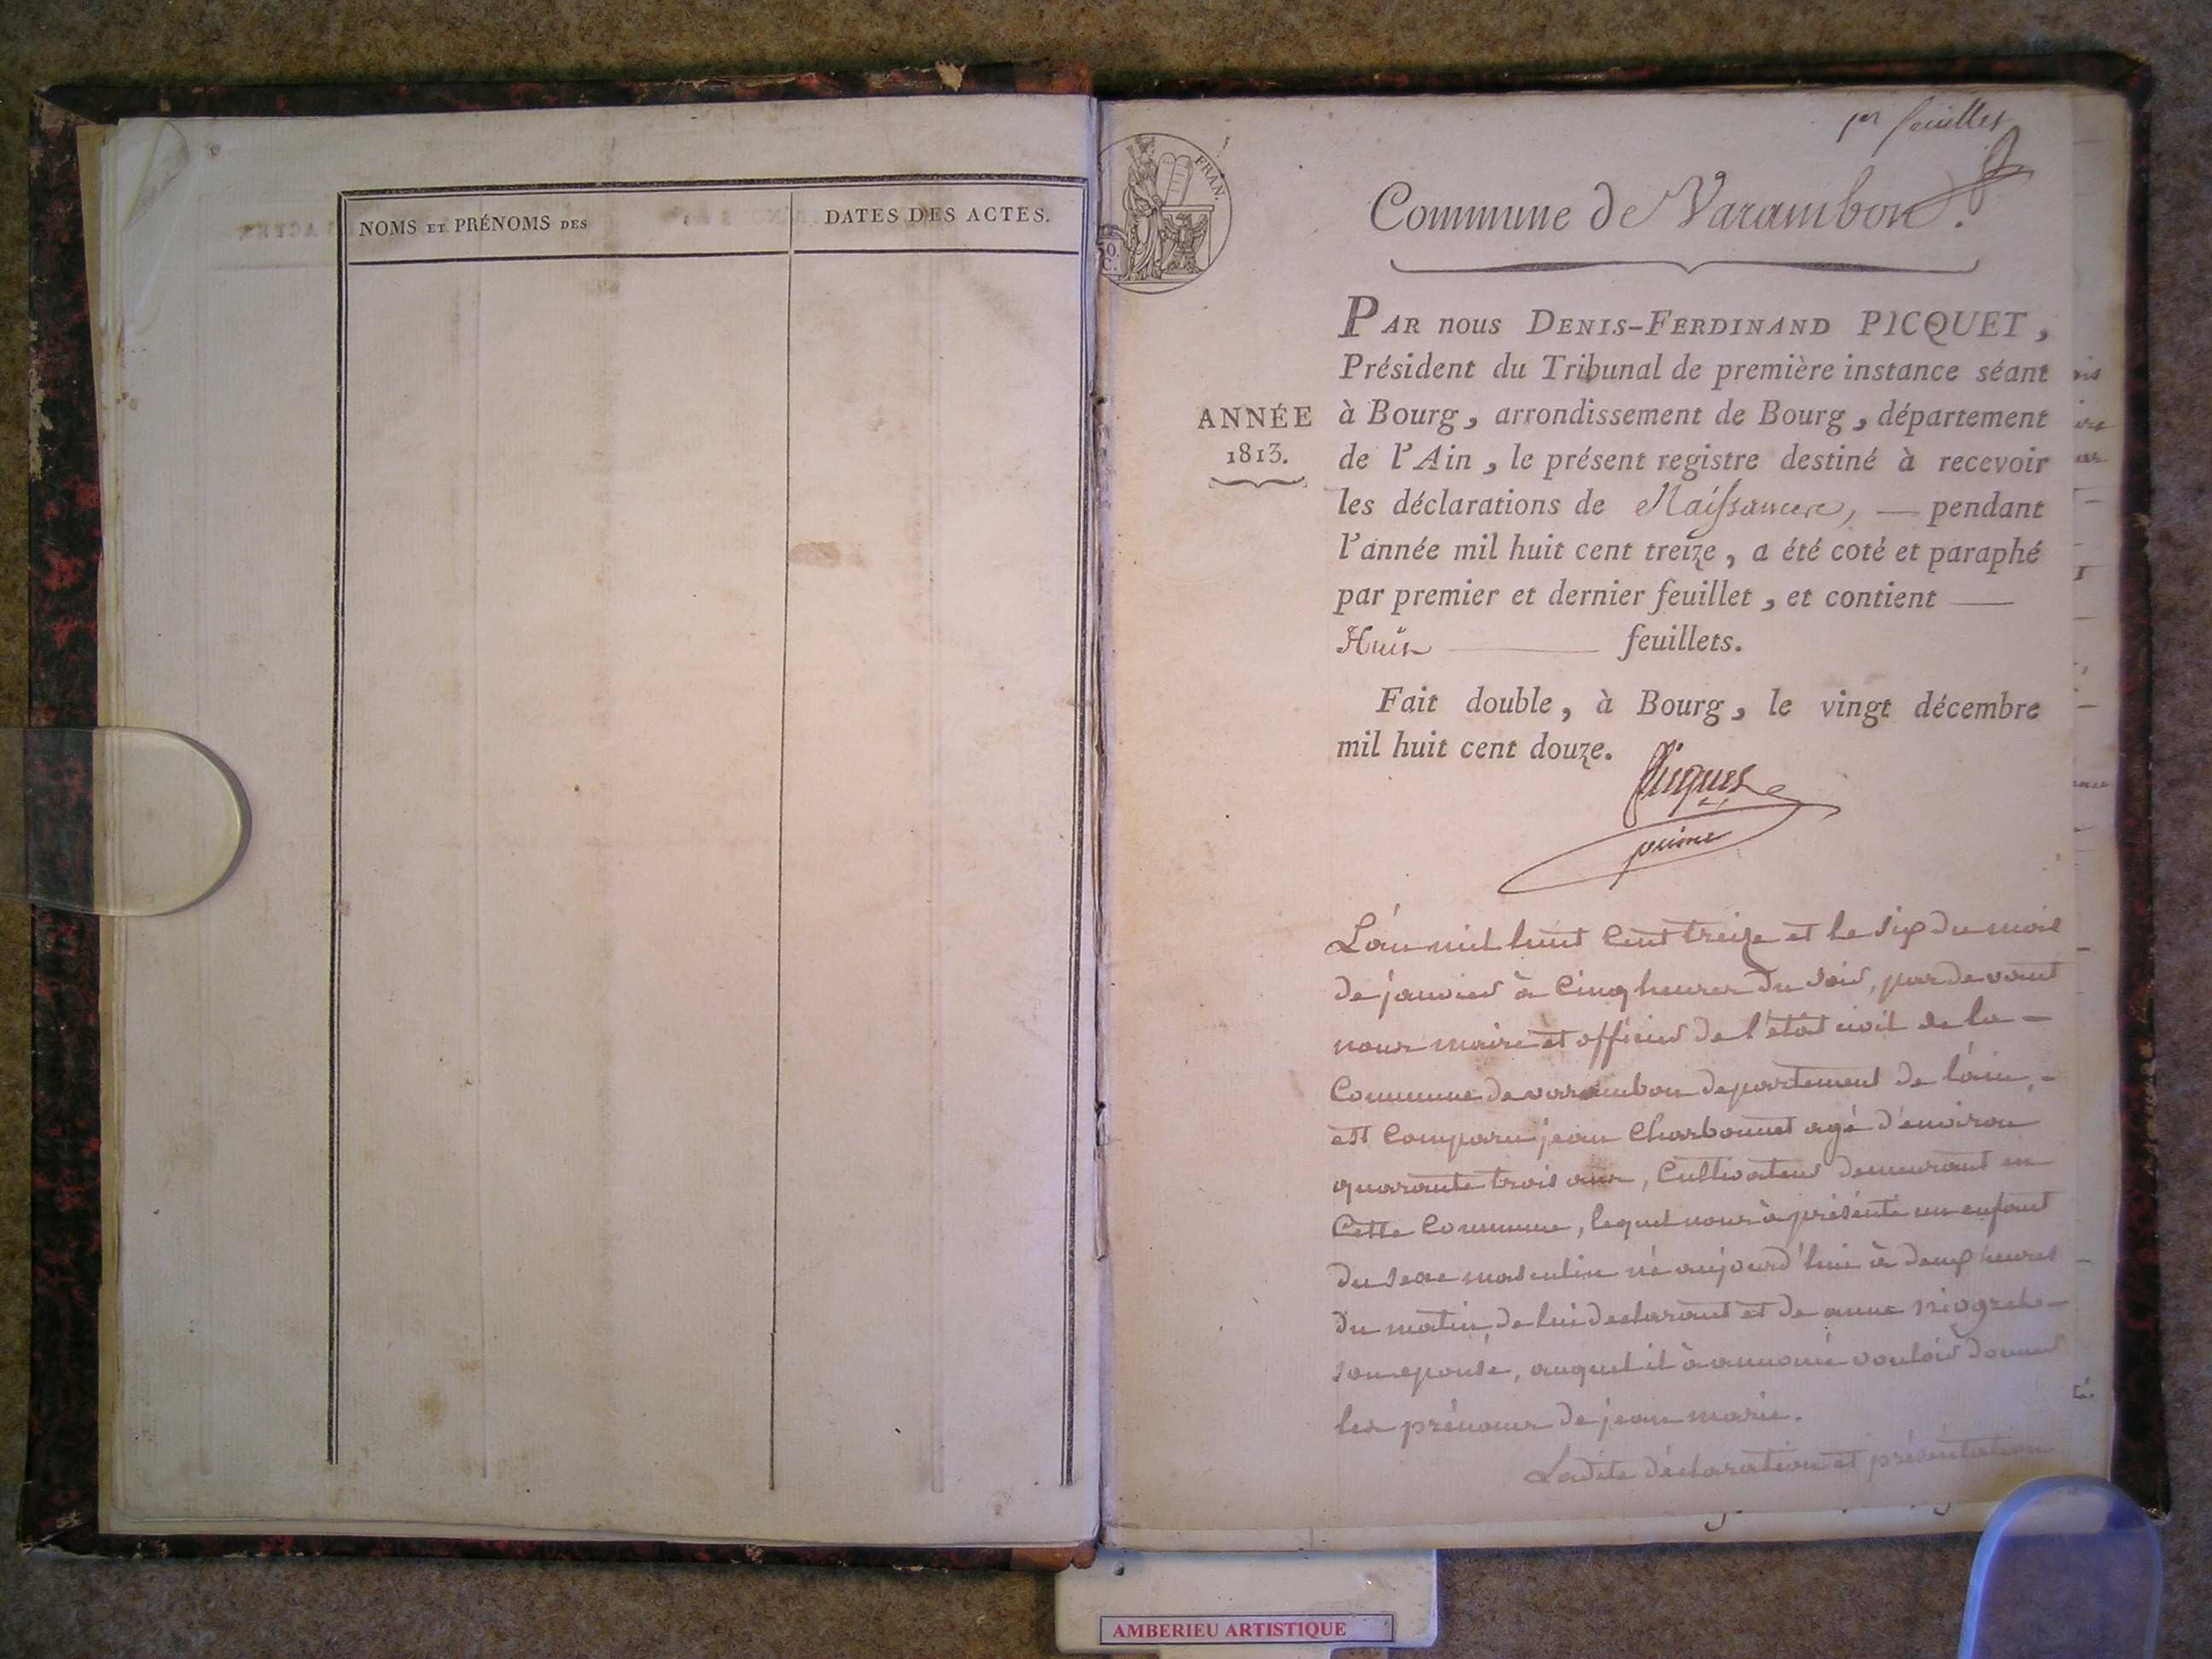 NOMS ET PRÉNOMS DES
DATES DES ACTES.
1er feuillet
FRAN.
50.
C.
Commune de Varambon.
PAR nous DENIS-FERDINAND PICQUET,
Président du Tribunal de première instance séant
à Bourg, arrondissement de Bourg, département
de l'Ain, le présent registre destiné à recevoir
les déclarations de Naissances, — pendant
l'année mil huit cent treize, a été coté et paraphé
par premier et dernier feuillet, et contient —
Huit — feuillets.
ANNÉE
1813.
Fait double, à Bourg, le vingt décembre
mil huit cent douze.
Picquet
L'án mil huit Cent treize et le six du mois
de janvier à Cinq heures du soir, pardevant
nous maire et officier de l'état civil de la —
Commune de varambon departement de l'áin, -
est Comparu jean Charbonnet agé d'environ
quarante trois ans, Cultivateur demeurant en
Cette Commune, lequel nous à présenté un enfant
du sexe masculin né aujourd'hui à deux heures
du matin, de lui declarant et de anne
son epouse, auquel il à annoncé vouloir donner
les prénoms de jean marie.
Ladite déclaration et présentation
AMBERIEU ARTISTIQUE